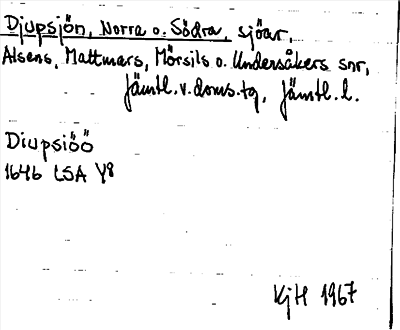 Djupsjön, Norra o. Södra, sjöar,
Alsens, Mattmars, Mörsils o. Undersåkers snr,
Jämtl.v.doms.tg, Jämtl.l.
Diupsiöö
1646 LSA Y8
KjH 1967